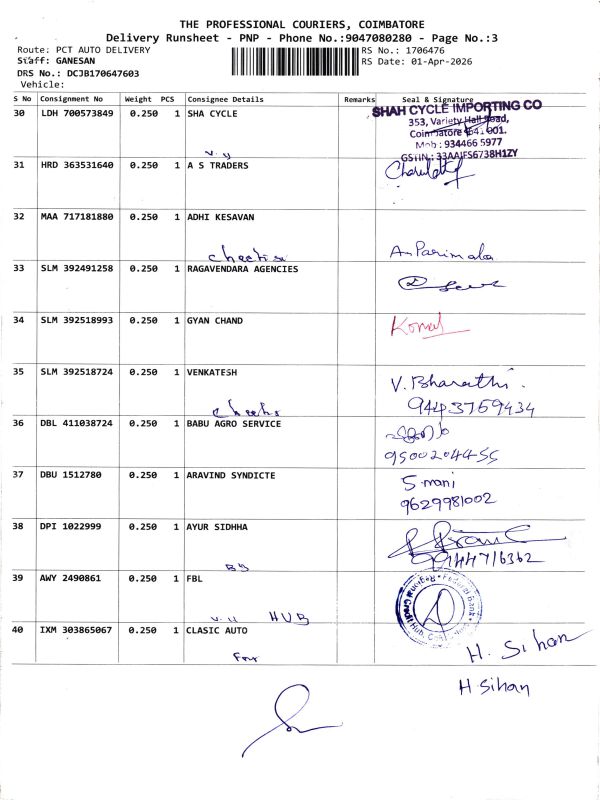 THE PROFESSIONAL COURIERS, COIMBATORE
Delivery Runsheet - PNP - Phone No.:9047080280 - Page No.:3
Route: PCT AUTO DELIVERY RS No.: 1706476
Staff: GANESAN RS Date: 01-Apr-2026
DRS No.: DCJB170647603
Vehicle:
S No Consignment No Weight PCS Consignee Details Remarks Seal & Signature
30 LDH 700573849 0.250 1 SHA CYCLE
SHAH CYCLE IMPORTING CO
353, Variety Hall Road,
Coimbatore 641 001.
Mob : 934466 5977
GSTIN : 33AAIFS6738H1ZY
31 HRD 363531640 0.250 1 A S TRADERS
32 MAA 717181880 0.250 1 ADHI KESAVAN
A. Parimala
33 SLM 392491258 0.250 1 RAGAVENDARA AGENCIES
34 SLM 392518993 0.250 1 GYAN CHAND
Komal
35 SLM 392518724 0.250 1 VENKATESH
V. Bharathi.
9443769434
36 DBL 411038724 0.250 1 BABU AGRO SERVICE
9500204455
37 DBU 1512780 0.250 1 ARAVIND SYNDICTE
S. mani
9629981002
38 DPI 1022999 0.250 1 AYUR SIDHHA
39 AWY 2490861 0.250 1 FBL
HUB
40 IXM 303865067 0.250 1 CLASIC AUTO
H. Sihan
H Sihan